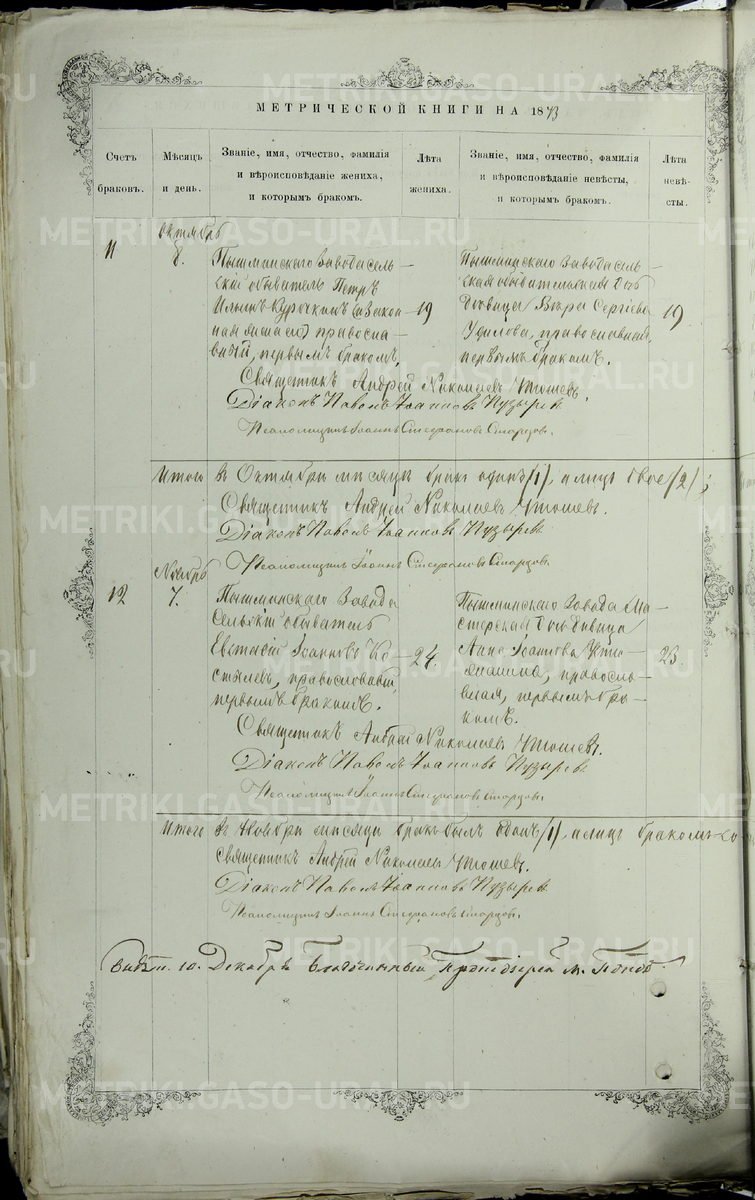 МЕТРИЧЕСКОЙ КНИГИ НА 1873
Счетъ
браковъ.
Мѣсяцъ
и день.
Званіе, имя, отчество, фамилія
и вѣроисповѣданіе жениха,
и которымъ бракомъ.
Лѣта
жениха.
Званіе, имя, отчество, фамилія
и вѣроисповѣданіе невѣсты,
и которымъ бракомъ.
Лѣта
невѣ-
сты.
11
Октябрь
8.
Пышминскаго Завода сель-
скій обыватель Петръ
Ильинъ Курочкинъ
православ-
вный, первымъ бракомъ,
19
Пышминскаго Завода сель-
скаго обывателя дочь
дѣвица Вѣра Сергіева
православная,
первымъ бракомъ.
19
Священникъ Андрей Николаевъ
Діаконъ Павелъ Іоанновъ Пузыревъ
Псаломщикъ Іоаннъ Стефановъ Старцовъ.
Итого въ Октябрѣ мѣсяцѣ бракъ одинъ (1), а лицъ двое (2);
Священникъ Андрей Николаевъ
Діаконъ Павелъ Іоанновъ Пузыревъ
Псаломщикъ Іоаннъ Стефановъ Старцовъ.
12
Ноябрь
7.
Пышминскаго Завода
Сельскій обыватель
Іоанновъ Ко-
православный,
первымъ бракомъ.
24.
Пышминскаго Завода Ма-
стерская дочь дѣвица
Анна Іоаннова
правосла-
вная, первымъ бра-
комъ.
23.
Священникъ Андрей Николаевъ
Діаконъ Павелъ Іоанновъ Пузыревъ
Псаломщикъ Іоаннъ Стефановъ Старцовъ.
Итого въ Ноябрѣ мѣсяцѣ бракъ былъ одинъ (1), а лицъ бракомъ
Священникъ Андрей Николаевъ
Діаконъ Павелъ Іоанновъ Пузыревъ
Псаломщикъ Іоаннъ Стефановъ Старцовъ.
10. Декабря Благочинный Протоіерей М. Поповъ
METRIKI.GASO-URAL.RU